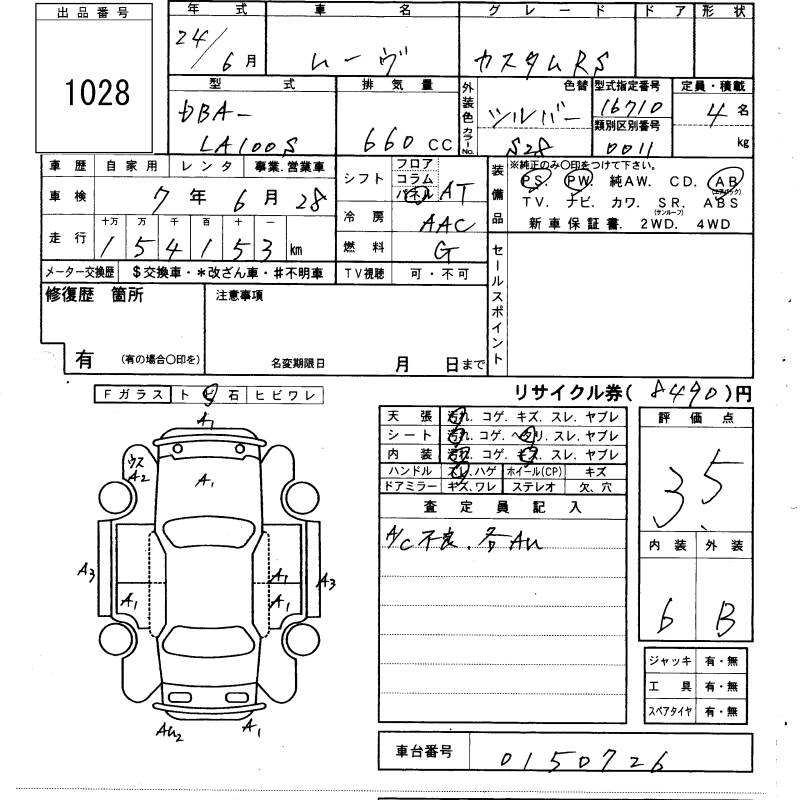 出品番号
1028
年式 車名 グレード ドア 形状
24/6月 ムーヴ カスタムRS
型式 排気量 外装色 色替 型式指定番号 定員・積載
DBA- シルバー 16710 4名
LA100S 660CC カラーNo. S28 類別区別番号 0011 kg
車歴 自家用 レンタ 事業.営業車
車検 7年6月28
走行 十万 万 千 百 十 一
154153km
メーター交換歴 $交換車・*改ざん車・#不明車
シフト フロア コラム パネル AT
冷房 AAC
燃料 G
TV視聴 可・不可
装備品 ※純正のみ〇印をつけて下さい。
PS. PW. 純AW. CD. AB(エアバック)
TV. ナビ. カワ. SR.(サンルーフ) ABS
新車保証書. 2WD. 4WD
セールスポイント
修復歴 箇所
有 (有の場合〇印を)
注意事項
名変期限日 月 日まで
リサイクル券(8490)円
Fガラス トビ石 ヒビワレ
天張 汚れ. コゲ. キズ. スレ. ヤブレ
シート 汚れ. コゲ. ヘタリ. スレ. ヤブレ
内装 汚れ. コゲ. キズ. スレ. ヤブレ
ハンドル スレ.ハゲ ホイール(CP) キズ
ドアミラー キズ.ワレ ステレオ 欠、穴
査定員記入
A/C不良. 各AU
評価点
3.5
内装 外装
6 B
ジャッキ 有・無
工具 有・無
スペアタイヤ 有・無
車台番号 0150726
A1
ウス
A2
A1
A3
A1
A1
A1
A3
AU2
A1